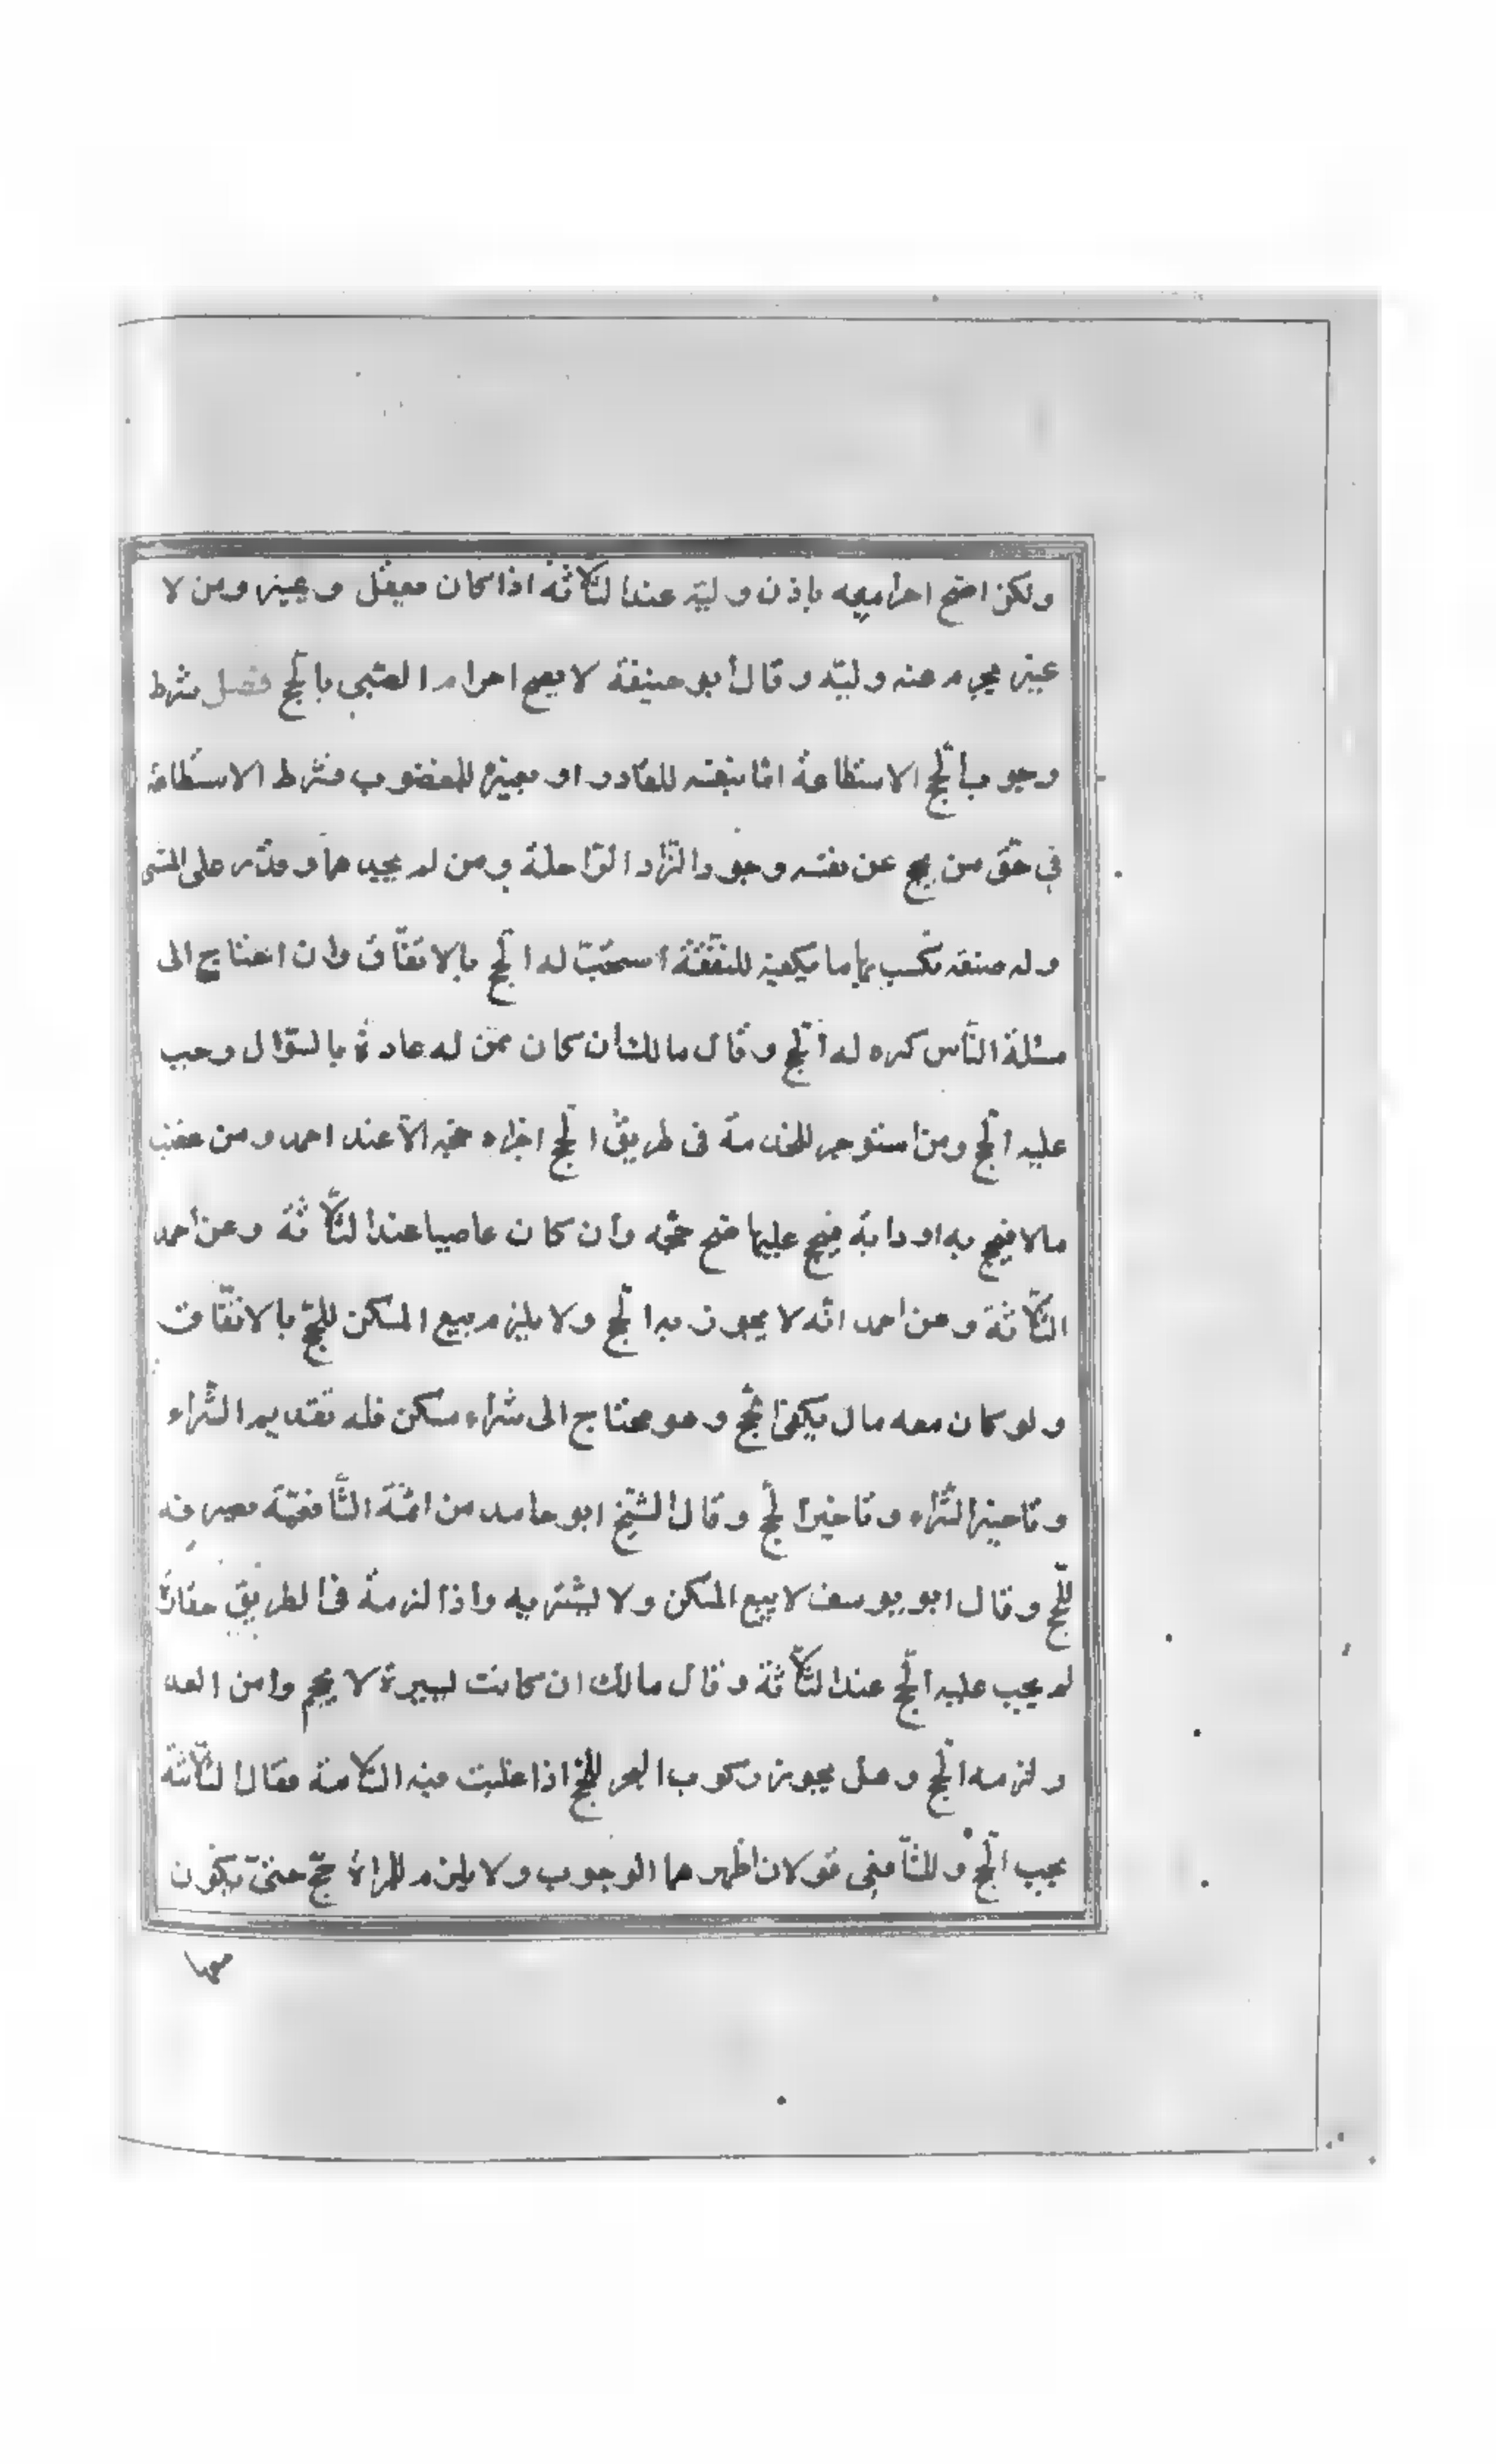 ولكن اصح احرامه به باذن وليّه عند الثّلاثة اذا كان يعقل ويميز ومن لا
يميز يحرم عنه وليّه وقال أبو حنيفة لا يصح احرام الصّبي بالحجّ فصل شرط
وجوب الحجّ الاستطاعة امّا بنفسه للقادر او بغيره للمعضوب فشرط الاستطاعة
في حقّ من يحج عن نفسه وجود الزّاد الرّاحلة ومن لم يجدهما وقدر على المشى
وله صنعه تكسب بها ما يكفيه للنّفقة استحبّ له الحجّ بالاتفّاق وان احتاج الى
مسئلة النّاس كره له الحجّ وقال مالك ان كان ممّن له عادة بالسّؤال وجب
عليه الحجّ ومن استوجر للخدمة فى طريق الحجّ اجزاه حجّه الّا عند احمد ومن غصب
مالا فيحج به او دابة فيحج عليها صح حجّه وان كان عاصيا عند الثّلاثة وعن احمد
الثّلاثة وعن احمد انّه لا يجوز به الحجّ ولا يلزم بيع المسكن للحجّ بالاتفّاق
ولو كان معه مال يكفى الحجّ وهو محتاج الى شراء مسكن فله تقديم الشّراء
وتاخير الشّراء وتاخير الحجّ وقال الشّيخ ابو حامد من ائمّة الشّافعيّة يصرفه
للحجّ وقال ابو يوسف لا يبيع المسكن ولا يشتريه واذا لزمه فى الطريق خفارة
لم يجب عليه الحجّ عند الثّلاثة وقال مالك ان كانت يسيرة لا يحج وامن العد
ولزمه الحجّ وهل يجوز ركوب البحر للحجّ اذا غلبت فيه السّلامة فقال الثّلاثة
يجب الحجّ وللشّافعى قولان اظهرهما الوجوب ولا يلزم للمراة حجّ حتّى تكون
معها